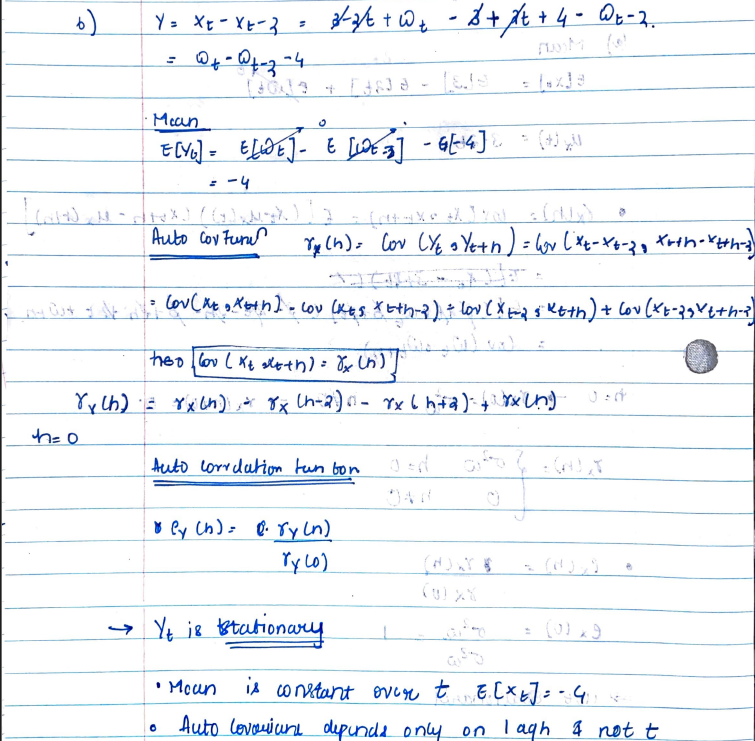 b) Y = Xt - Xt-2 = 3-2t + ωt - 3 + 2t + 4 - ωt-2.
= ωt - ωt-2 - 4
Mean
E[Yt] = E[ωt] - E[ωt-2] - E[4]
= -4
Auto Cov Funcn γx(h) = Cov (Yt, Yt+h) = Cov (Xt-Xt-2, Xt+h-Xt+h-2)
= Cov(Xt, Xt+h) - Cov (Xt, Xt+h-2) - Cov (Xt-2, Xt+h) + Cov (Xt-2, Xt+h-2)
Cov (Xt, Xt+h) = γx (h)
γY (h) = γx (h) - γx (h-2) - γx (h+2) + γx (h)
h=0
Auto correlation function
ρY (h) = γY (h)
γY (0)
→ Yt is stationary
• Mean is constant over t E[Xt] = -4
• Auto Covariance depends only on lag h & not t